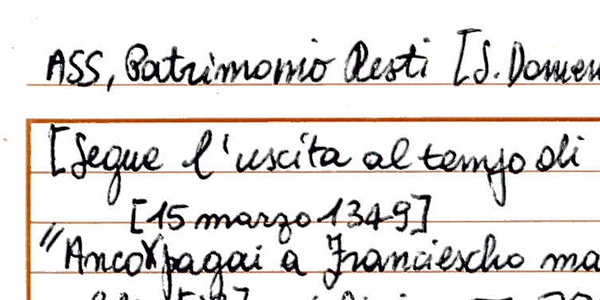 ASS, Patrimonio Resti [S. Domen
[Segue l'uscita al tempo di
[15 marzo 1349]
"Anco pagai a Franciescho ma